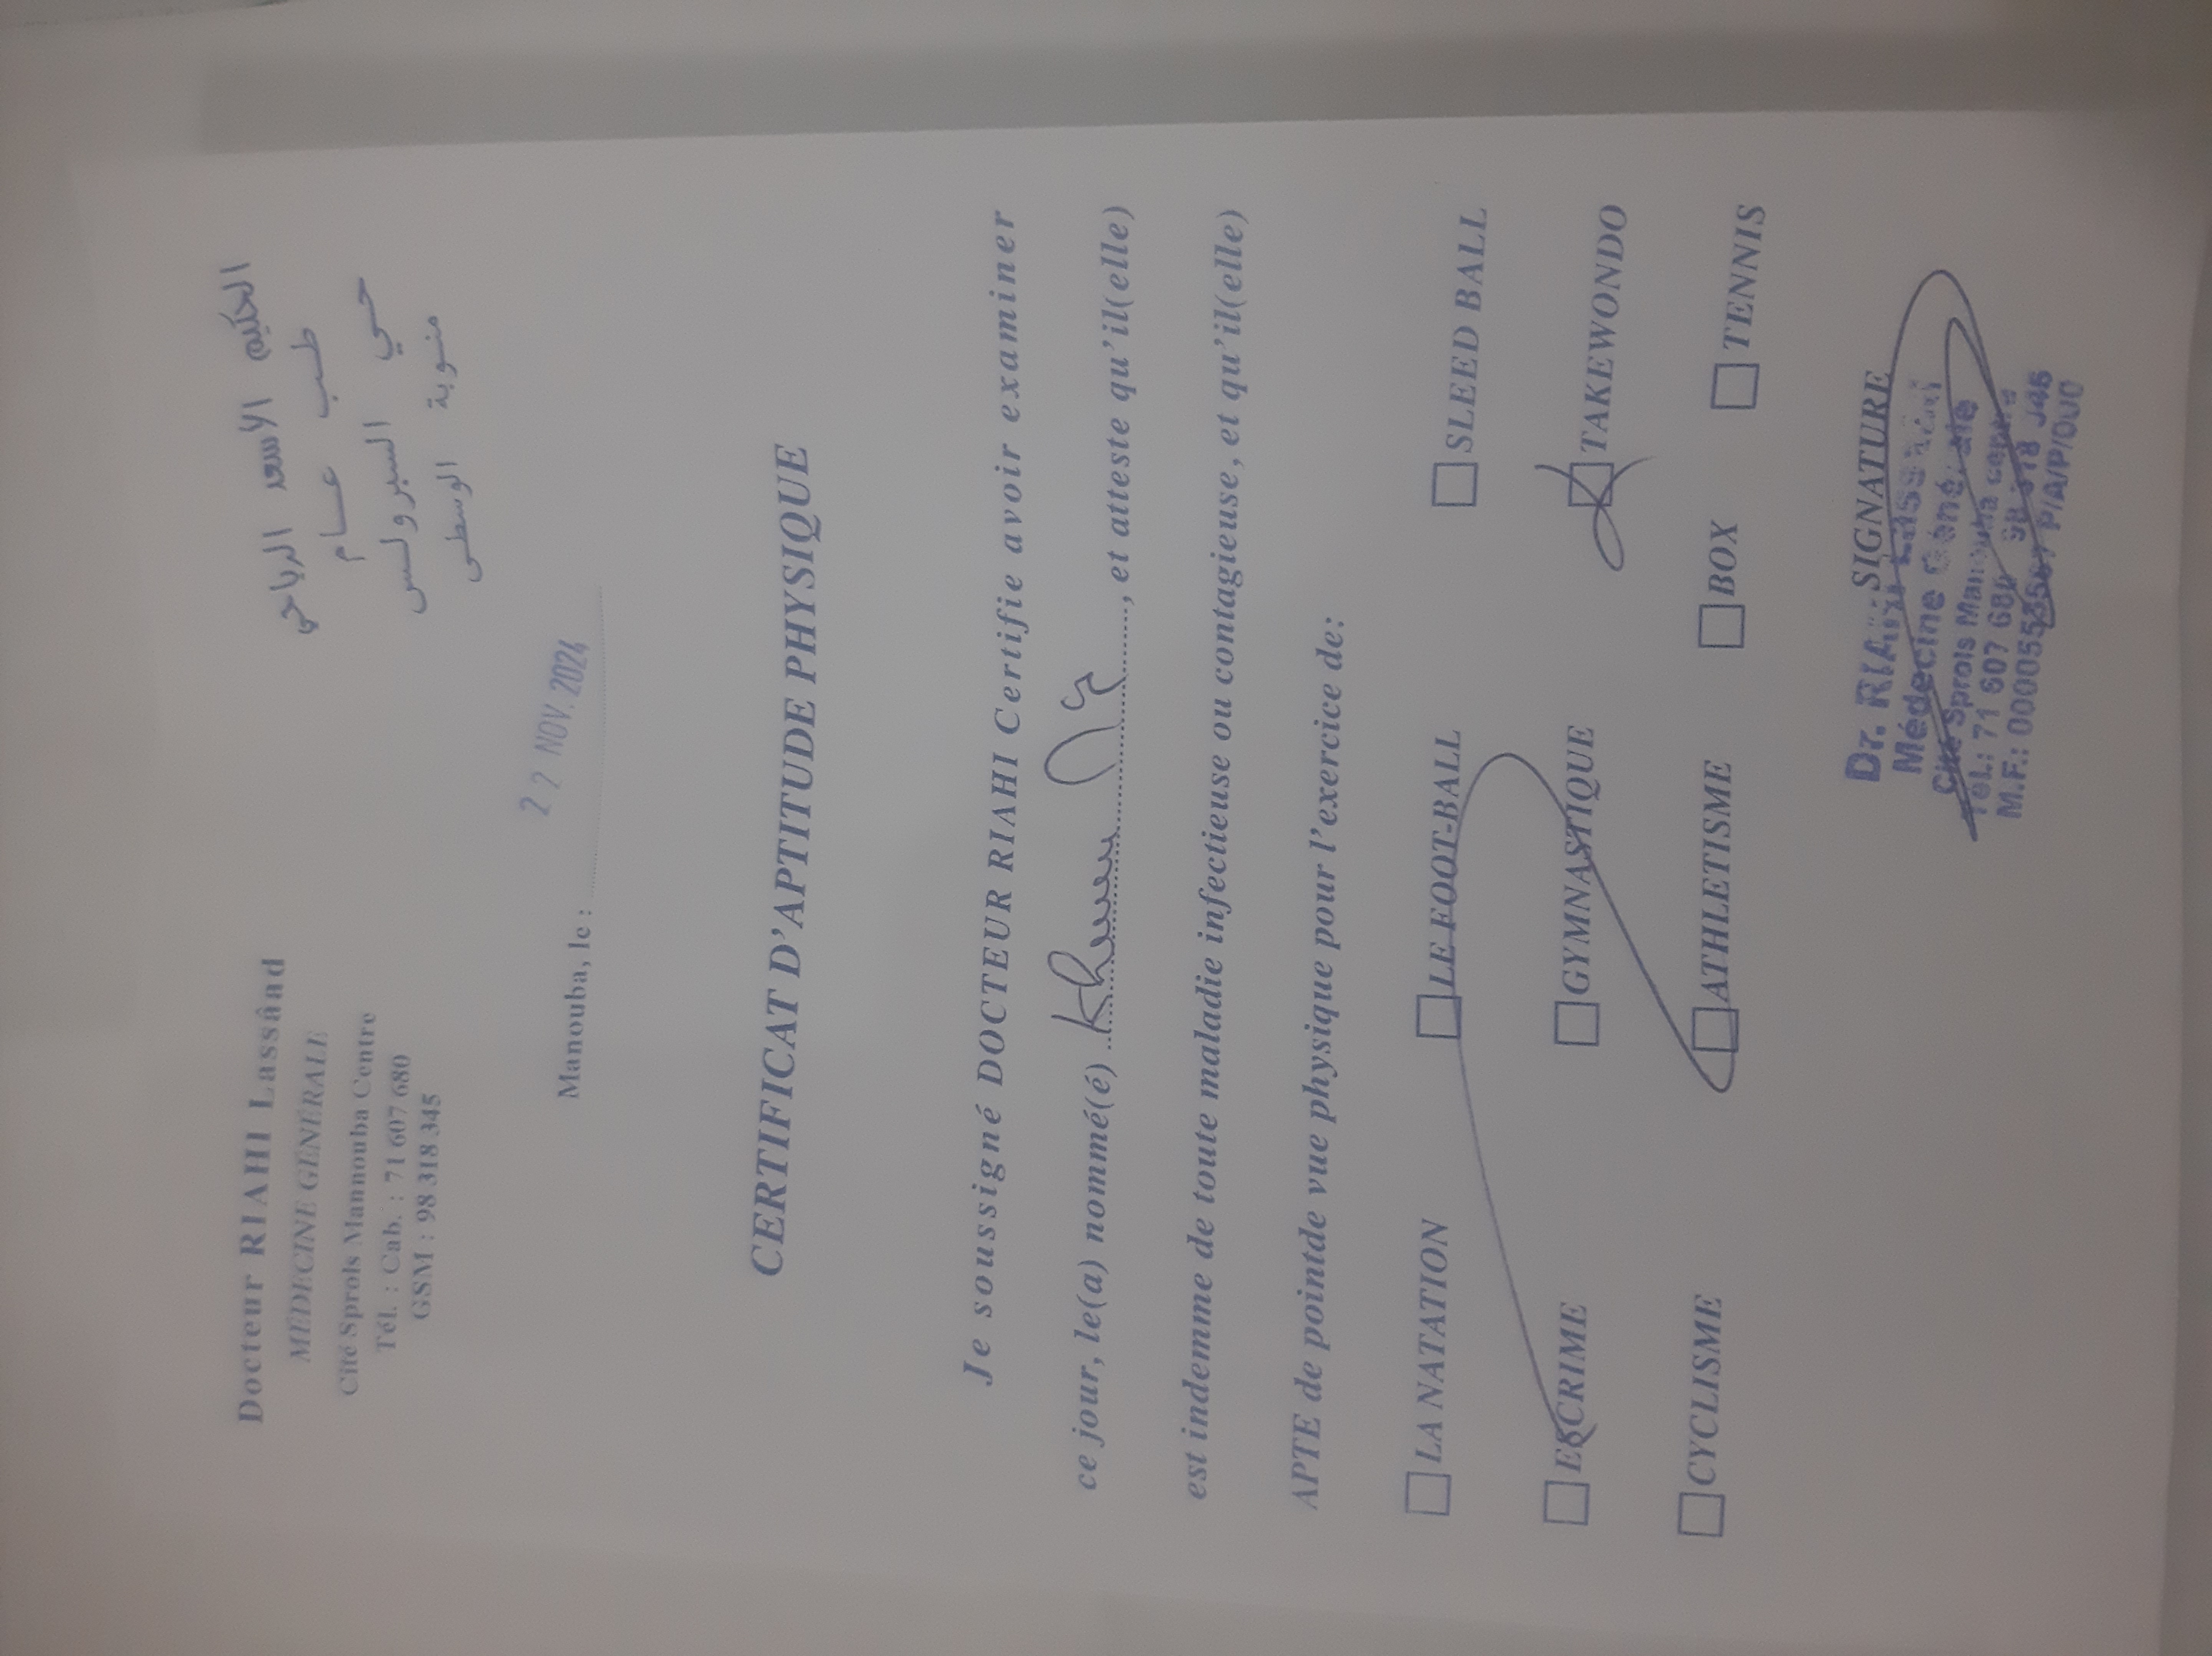 Docteur RIAHI Lassâad
MÉDECINE GÉNÉRALE
Cité Sprols Mannouba Centre
Tél. : Cab. : 71 607 680
GSM : 98 318 345
الحكيم الأسعد الرياحي
طب عام
حي السبرولس
منوبة الوسطى
Manouba, le :
22 NOV. 2024
CERTIFICAT D'APTITUDE PHYSIQUE
Je soussigné DOCTEUR RIAHI Certifie avoir examiner
ce jour, le(a) nommé(é) , et atteste qu'il(elle)
est indemme de toute maladie infectieuse ou contagieuse, et qu'il(elle)
APTE de pointde vue physique pour l'exercice de:
LA NATATION LE FOOT-BALL SLEED BALL
ESCRIME GYMNASTIQUE TAKEWONDO
CYCLISME ATHLETISME BOX TENNIS
SIGNATURE
Dr. RIAHI
Médecine
Cité Sprols Manouba
Tel.: 71 607 680
M.F.: P/A/P/000